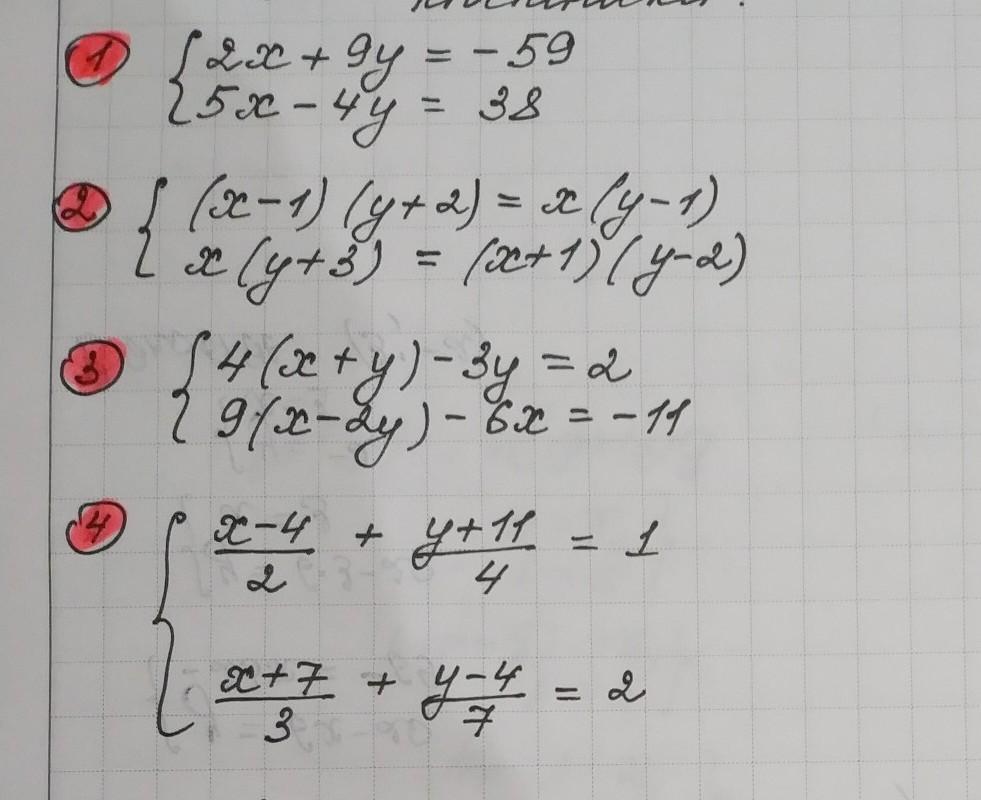 1 { 2x + 9y = - 59
5x - 4y = 38
2 { (x-1) (y+2) = x(y-1)
x(y+3) = (x+1)(y-2)
3 { 4(x+y) - 3y = 2
9(x-2y) - 6x = -11
4 { (x-4)/2 + (y+11)/4 = 1
(x+7)/3 + (y-4)/7 = 2